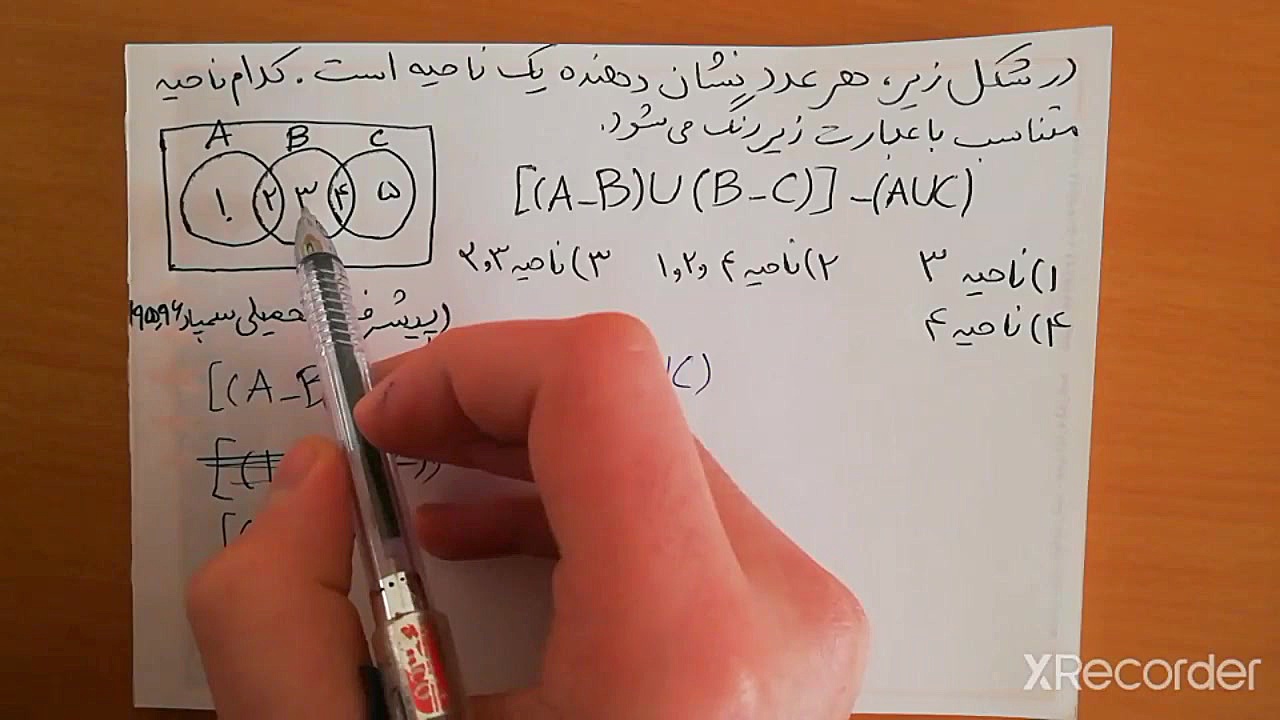 در شکل زیر، هر عدد نشان دهنده یک ناحیه است. کدام ناحیه
متناسب با عبارت زیر رنگ می‌شود.
A B C
۱ ۲ ۳ ۴ ۵
[(A-B)∪(B-C)]-(A∪C)
۱) ناحیه ۳ ۲) ناحیه ۱,۲,۴ ۳) ناحیه ۲,۳
۴) ناحیه ۴
(پیشرف حصیلی سمپاد
[(A-B
C)
XRecorder